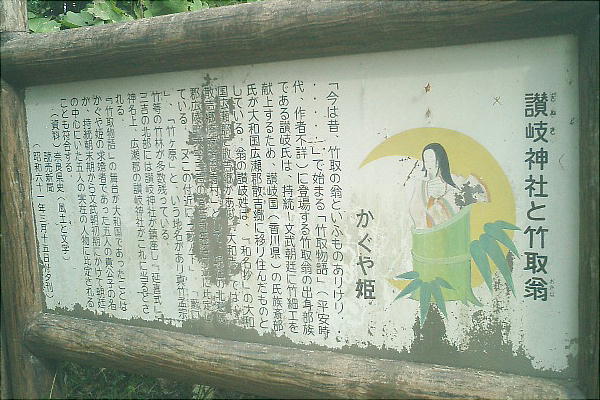 讃岐神社と竹取翁
さぬき
おきな
かぐや姫
「今は昔、竹取の翁といふものありけり・・
・・・・・」で始まる「竹取物語」(平安時
代、作者不詳)に登場する竹取翁の出身部族
である讃岐氏は、持統-文武朝廷に竹細工を
献上するため、讃岐国(香川県)の氏族斎部
氏が大和国広瀬郡散吉郷に移り住んだものと
している。翁の讃岐姓は、「和名抄」の大和
国広瀬郡に散吉郷があり
ている。又この付近に
「竹ヶ原」という地名があり
竹等の竹林が多数残っている。
三吉の北部には讃岐神社が鎮座し「延喜式」
神名上、広瀬郡の讃岐神社がこれに当るとさ
れる。
「竹取物語」の舞台が大和国であったことは
かぐや姫の求婚者であった五人の貴公子の名
が、持統朝末期から文武朝初期にかけて朝廷
の中心にいた五人の実在の人物に比定される
ことも符合する。
(資料)奈良県史(風土と文学)
読売新聞
(昭和六十一年三月十五日付夕刊)